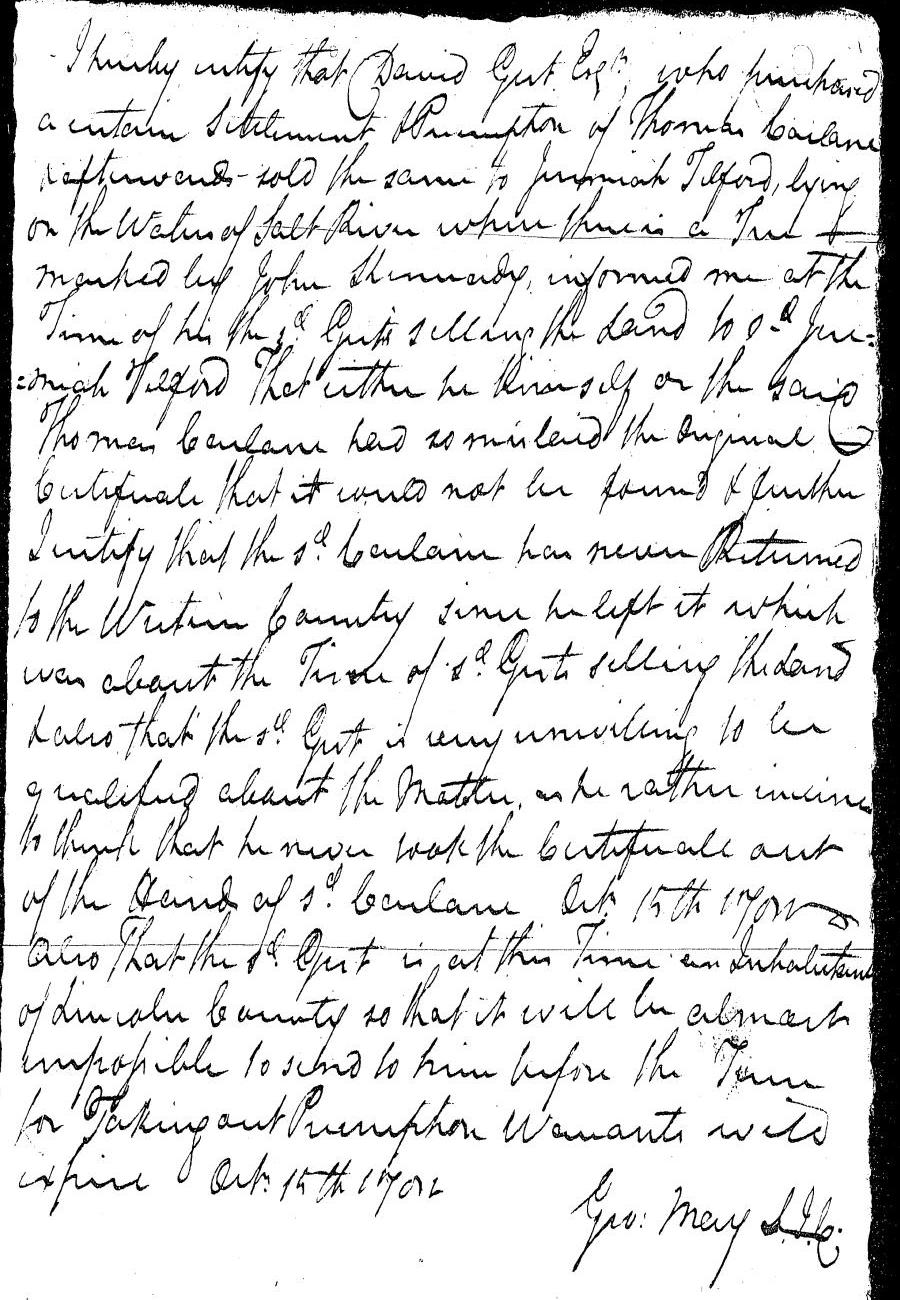 I hereby certify that David Gist Esqr. who purchased
a certain Settlement & Preemption of Thomas Carlane
& afterwards sold the same to Jeremiah Tilford, lying
on the Waters of Salt River where there is a Tree
marked by John Kennedy, informed me at the
Time of his the sd. Gists selling the Land to sd. Jere=
=miah Tilford That either he himself or the said
Thomas Carlane had so mislaid the Original
Certificate that it could not be found & further
I certify that the sd. Carlane has never Returned
to the Western Country since he left it which
was about the Time of sd. Gists selling the Land
& also that the sd. Gist is very unwilling to be
qualified about the Matter, as he rather incline
to think that he never took the Certificate out
of the Hands of sd. Carlane Oct. 15th
Also That the sd. Gist is at this Time an Inhabitant
of Lincoln County so that it will be almost
impossible to send to him before the Time
for Taking out Preemption Warrants will
expire Oct. 15th
Geo: May S.J.C.